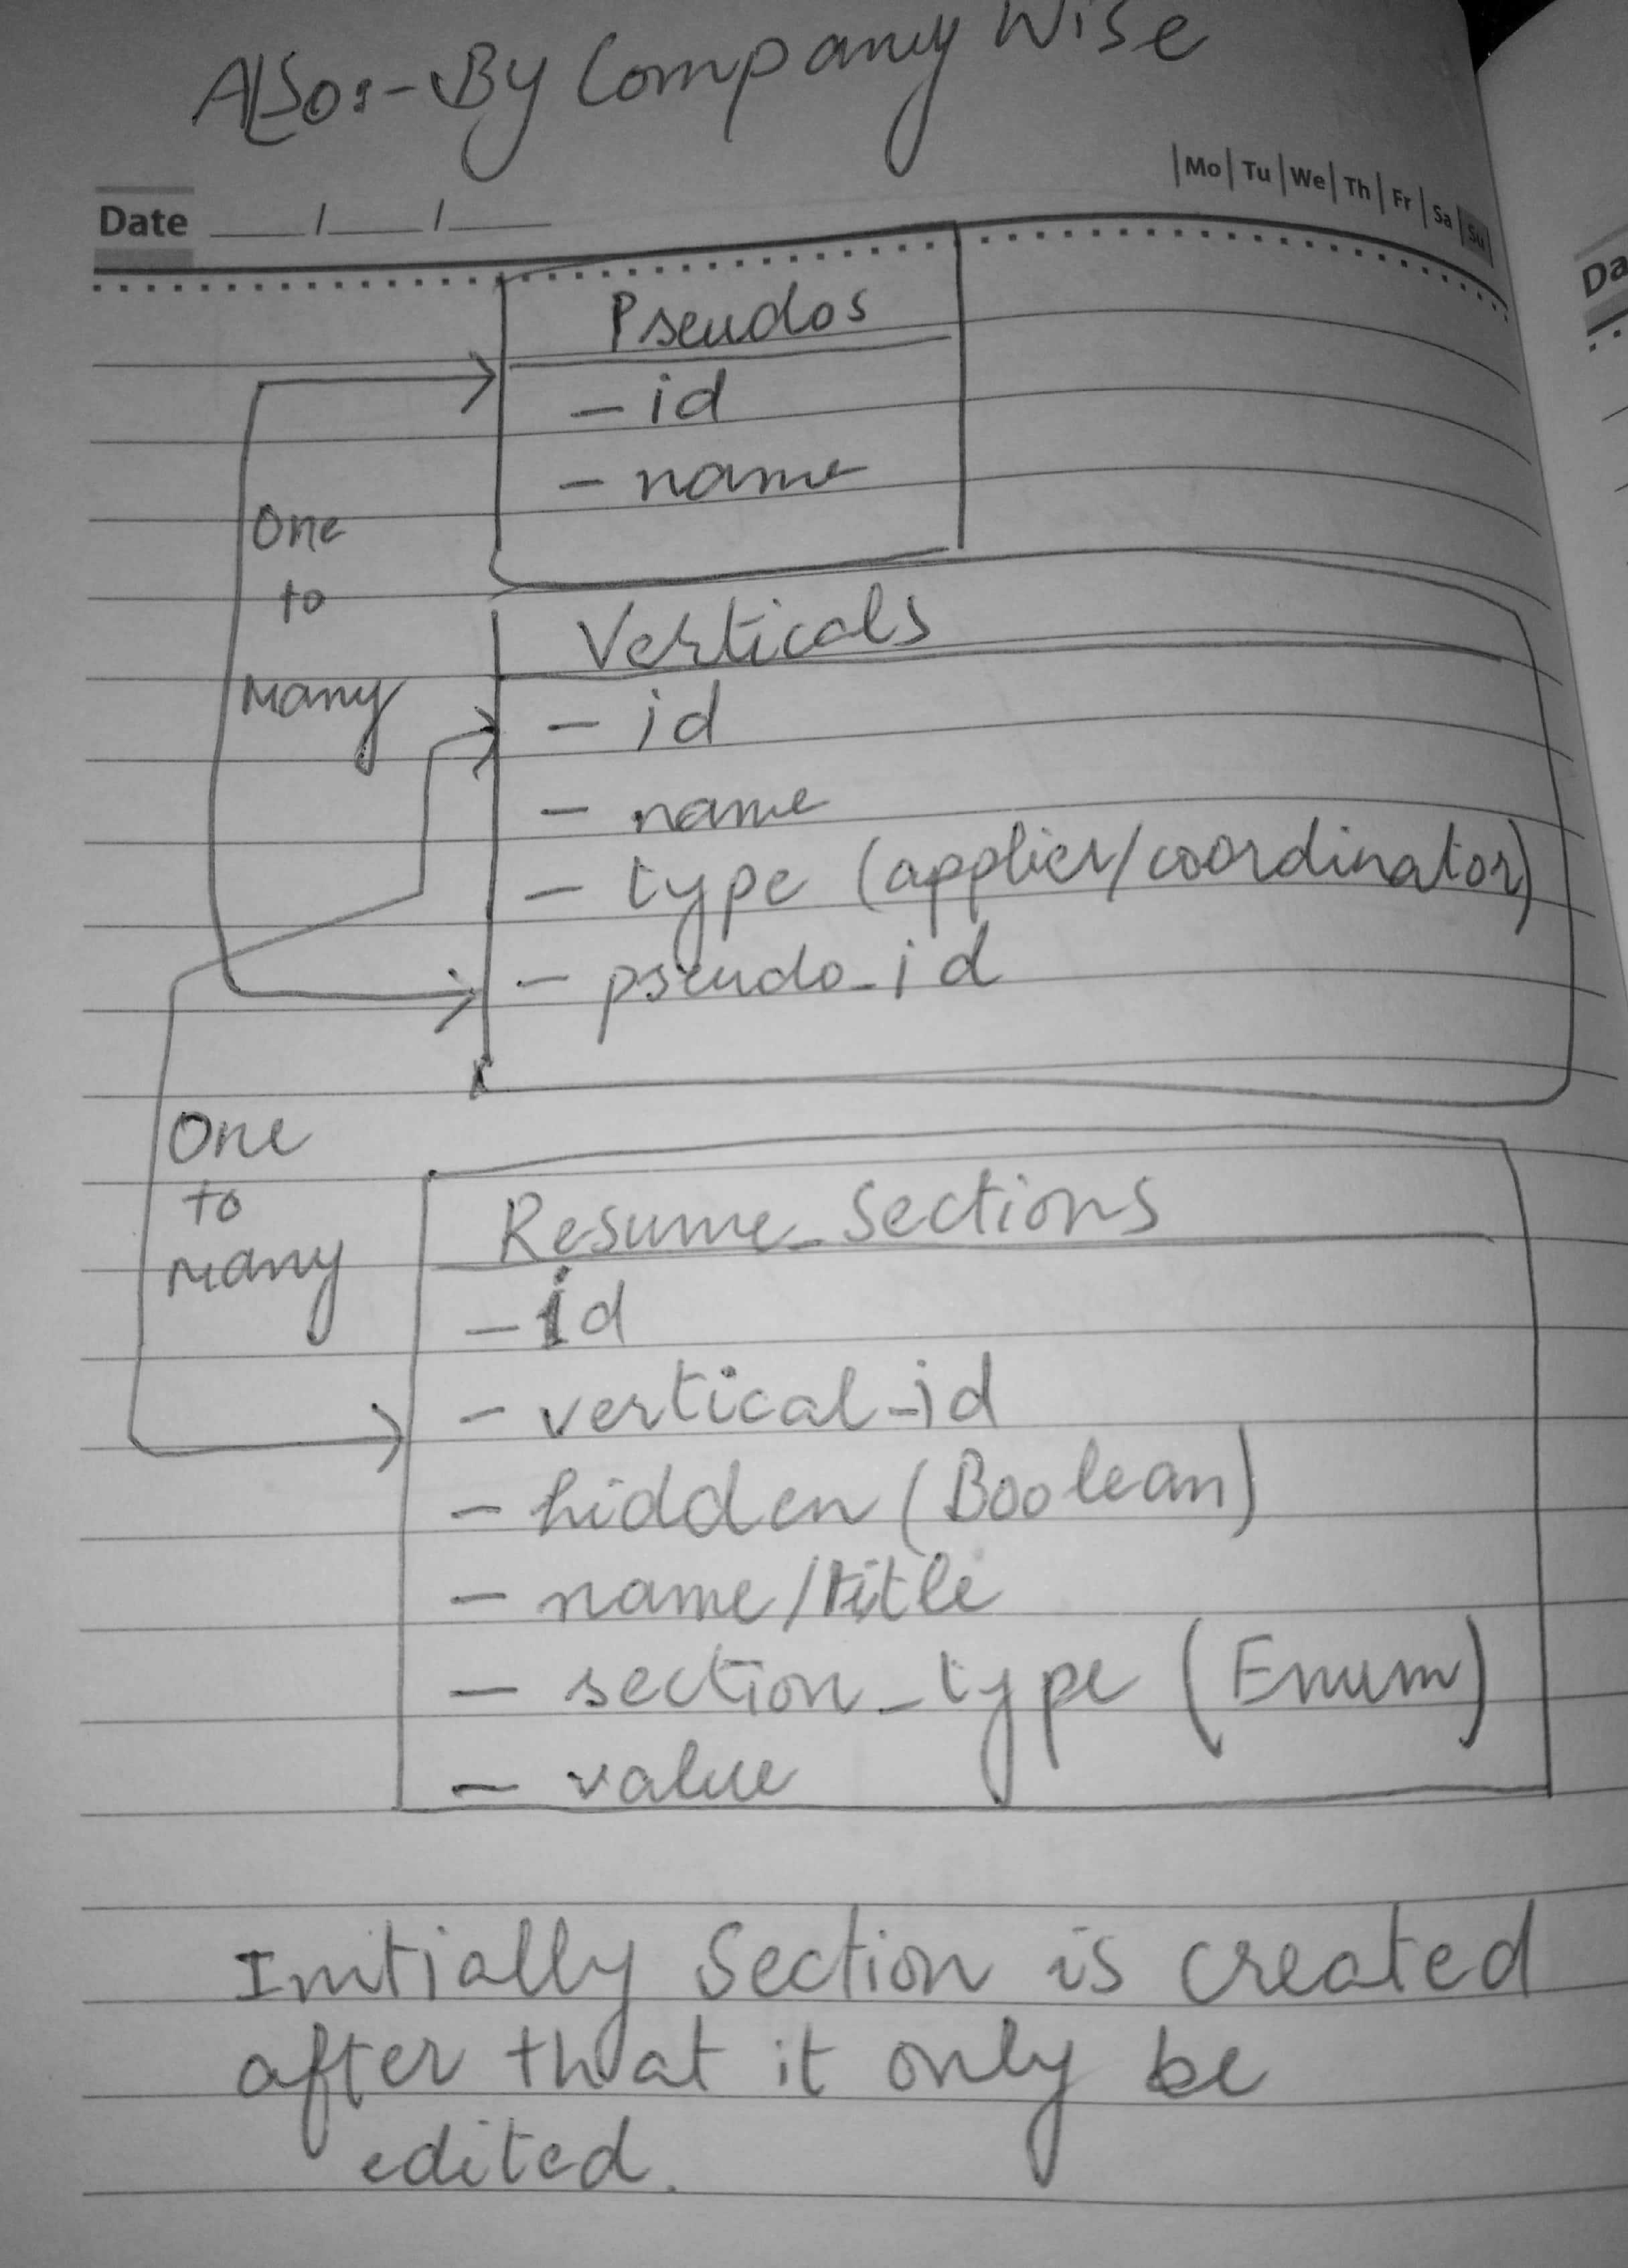 Also:- By Company Wise
Mo Tu We Th Fr Sa Su
Date __/__/__
Da
Pseudos
- id
- name
One
to
Many
Verticals
- id
- name
- type (applier/coordinator)
- pseudo_id
One
to
Many
Resume_Sections
- id
- vertical_id
- hidden (Boolean)
- name/title
- section_type (Enum)
- value
Initially Section is created
after that it only be
edited.